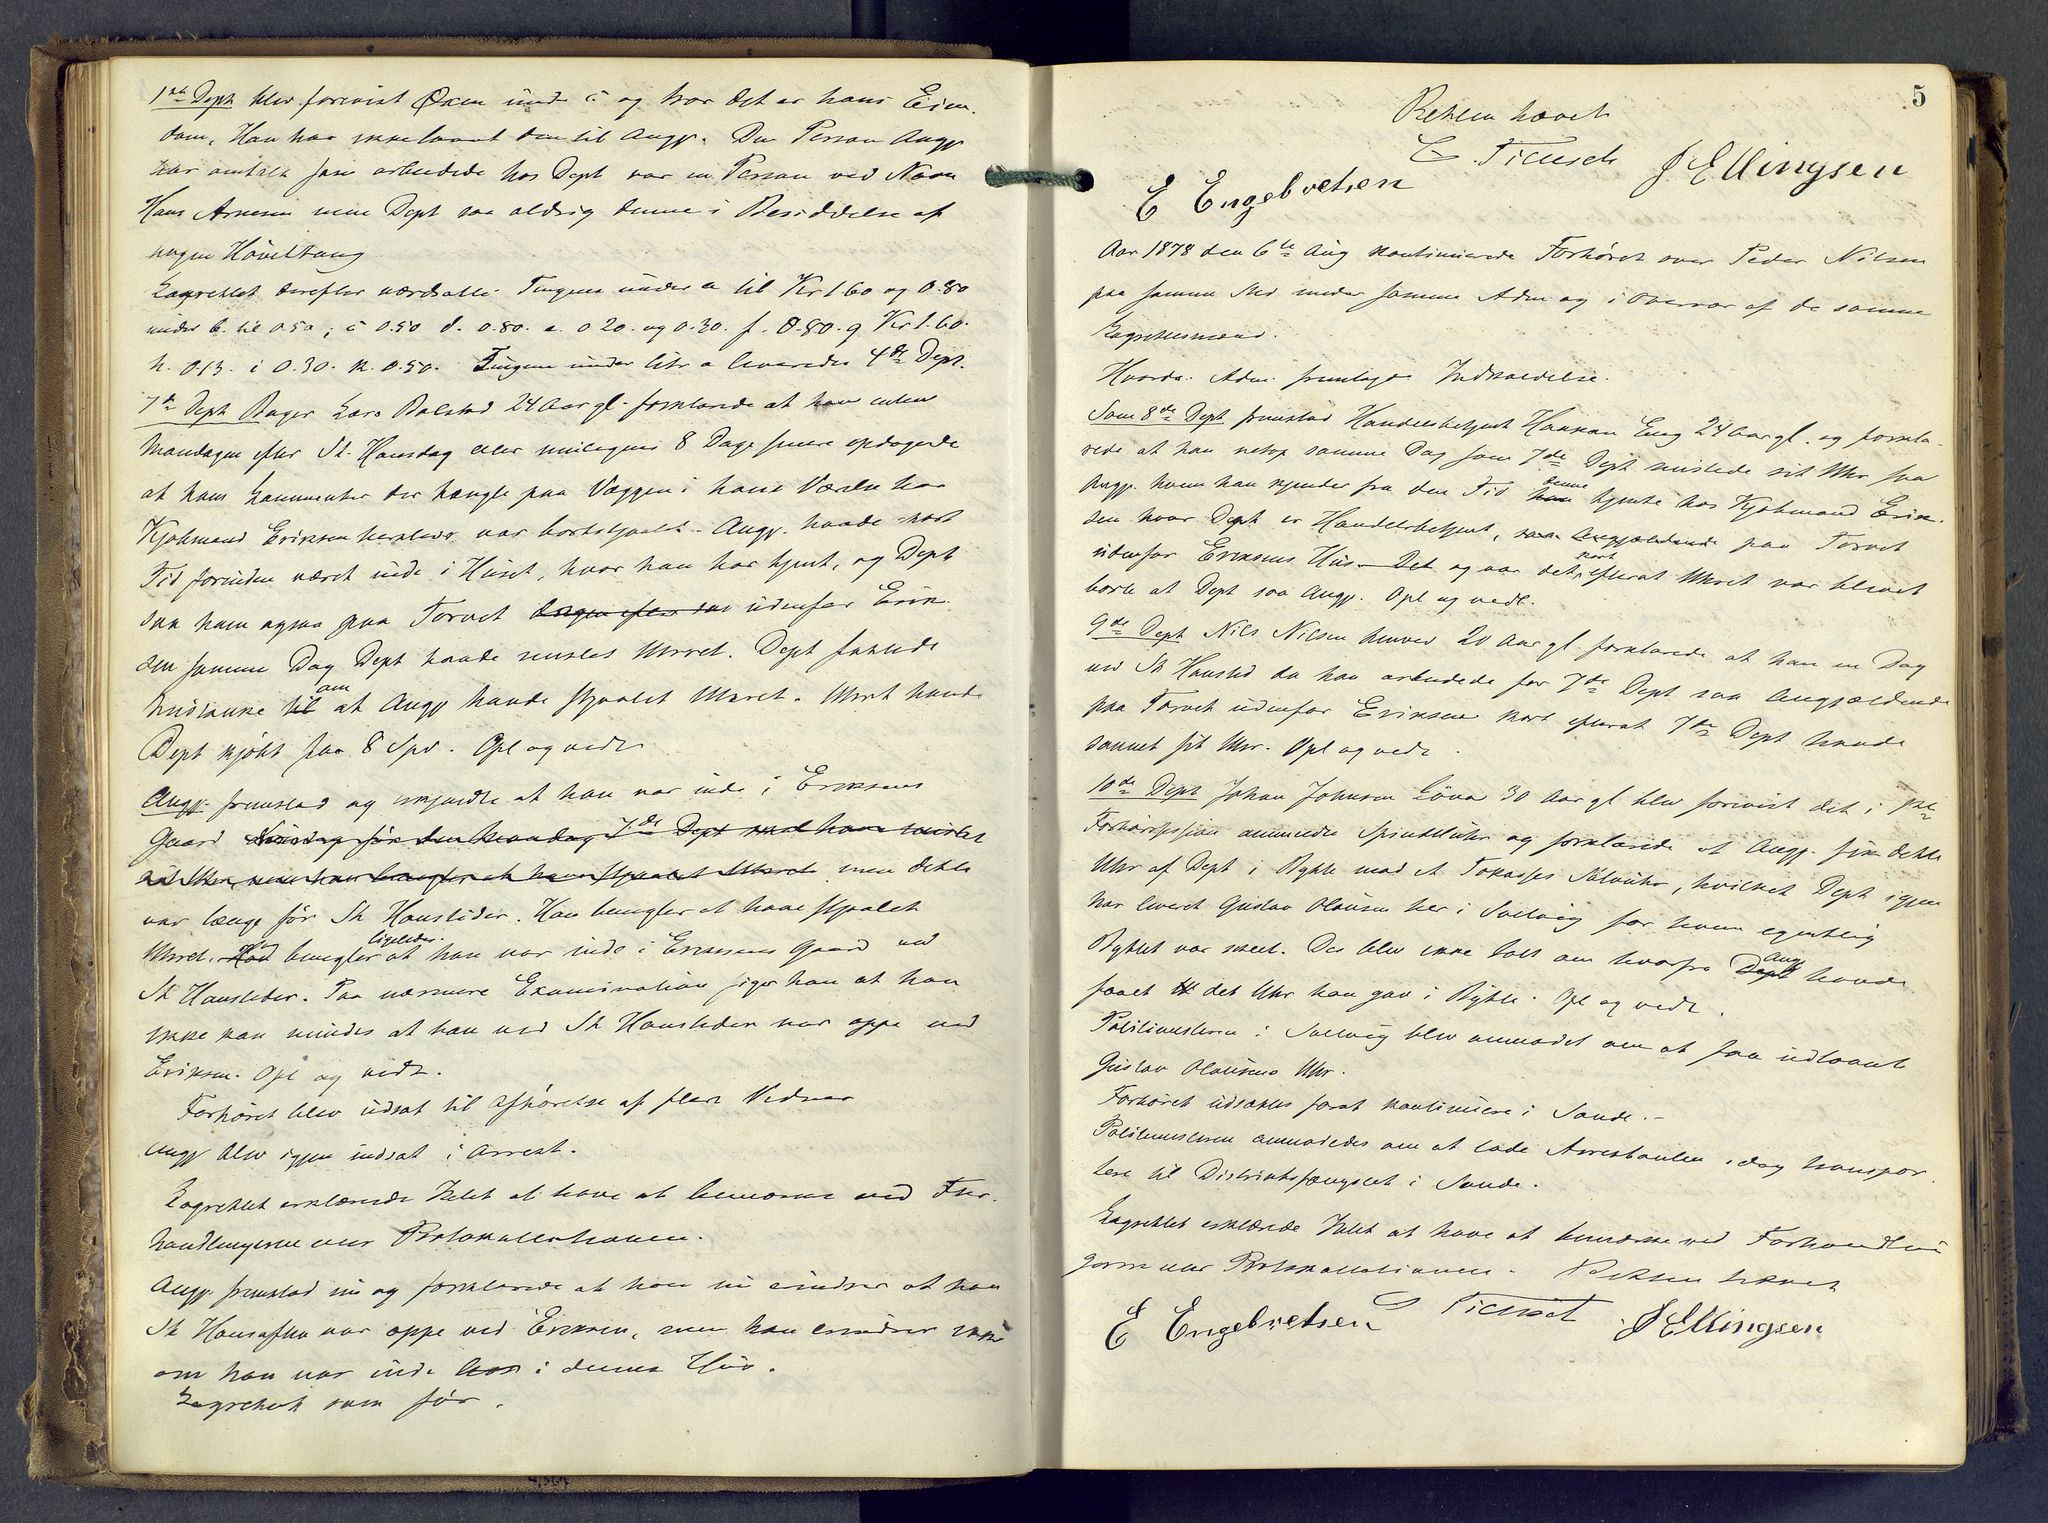 1ste Dept blev forevist Øxen under i og tror det er hans Eien
dom, Han har ikke laant den til Angj. Den Person Angj
har omtalt som arbeidede hos Dept var en Person ved Navn
Hans Arnesen men Dept saa aldrig denne i Besiddelse af
nogen Høveltang
Lagrettet derefter værdsatte Tingene under a til Kr 1.60 og 0.80
under b. til 0.50; c 0.50 d. 0.80. e. 0 20. og 0.30. f. 0.80. g Kr 1.60.
h. 013. i 0.30. k. 0.50. Tingene under litr a leveredes 4de Dept.
7de Dept Bager Lars Bolstad 24 Aar gl. forklarede at han enten
Mandagen efter St. Hansdag eller muligens 8 Dage senere opdagede
at hans Lommeuhr der hængte paa Væggen i hans Værelse hos
Kjøbmand Eriksen var bortstjaalet. Angj. havde kort
Tid forinden været inde i Huset, hvor han har tjent, og Dept
saa ham ogsaa paa Torvet udenfor Erik
sen samme Dag Dept havde mistet Uhret. Dept fattede
Mistanke til om at Angj havde stjaalet Uhret. Uhret havde
Dept kjøbt for 8 Spd. Opl og vedt.
Angj. fremstod og erkjendte at han var inde i Eriksens
Gaard men dette
var længe før St Hanstider. Han benegter at have stjaalet
Uhret. Han benegter ligeledes at han var inde i Eriksens Gaard ved
St Hanstider. Paa nærmere Examination siger han at han
ikke kan mindes at han ved St Hanstider var oppe ved
Eriksen. Opl og vedt.
Forhøret blev udsat til Afhørelse af flere Vidner
Angj blev igjen indsat i Arrest.
Lagrettet erklærede Intet at have at bemærke ved For
handlingerne eller Protokollationen.
Angj. fremstod nu og forklarede at han nu erindrer at han
St Hansaften var oppe ved Eriksen, men han erindrer ikke
om han var inde hos i dennes Hus.
Lagrettet som før.
5
Retten hævet
E Engebretsen J Ellingsen
Aar 1878 den 6te Aug kontinuerede Forhøret over Peder Nilsen
paa samme Sted under samme Adm og i Overvær af de samme
Lagrettesmænd.
Hvorda: Adm. fremlagde Indkaldelse.
Som 8de Dept fremstod Handelsbetjent Haakon Eng 24 Aar gl. og forkla
rede at han netop samme Dag som 7de Dept mistede sit Uhr saa
Angj. hvem han kjender fra den Tid han denne tjente hos Kjøbmand Erik
sen hvor Dept er Handelsbetjent, paa Torvet
udenfor Eriksens Hus. Det og var det kort efterat Uhret var blevet
borte at Dept saa Angj. Opl og vedt.
9de Dept Nils Nilsen 20 Aar gl. forklarede at han en Dag
ved St Hanstid da han arbeidede for 7de Dept saa Angjældende
paa Torvet udenfor Eriksen kort efterat 7de Dept havde
savnet sit Uhr. Opl og vedt.
10de Dept Johan Johnsen Løva 30 Aar gl blev forevist det i
Forhørssession ommeldte Spindeluhr og forklarede at Angj. fik dette
Uhr af Dept i Bytte mod et Tokasses Sølvuhr, hvilket Dept igjen
har leveret Gustav Olausen her i Svelvig for hvem egentlig
Byttet var skeet. Der blev ikke talt om hvorfra Dept Angj havde
faaet det Uhr han gav i Bytte. Opl og vedt.
Politimesteren i Svelvig blev anmodet om at faa udlaant
Gustav Olausens Uhr.
Forhøret udsættes forat kontinuere i Sande.-
Politimesteren anmodedes om at lade Arrestanten idag transpor
tere til Distriktsfængslet i Sande.
Lagrettet erklærede Intet at have at bemærke ved Forhandlin
gerne eller Protokollationen. Retten hævet
E Engebretsen J Ellingsen